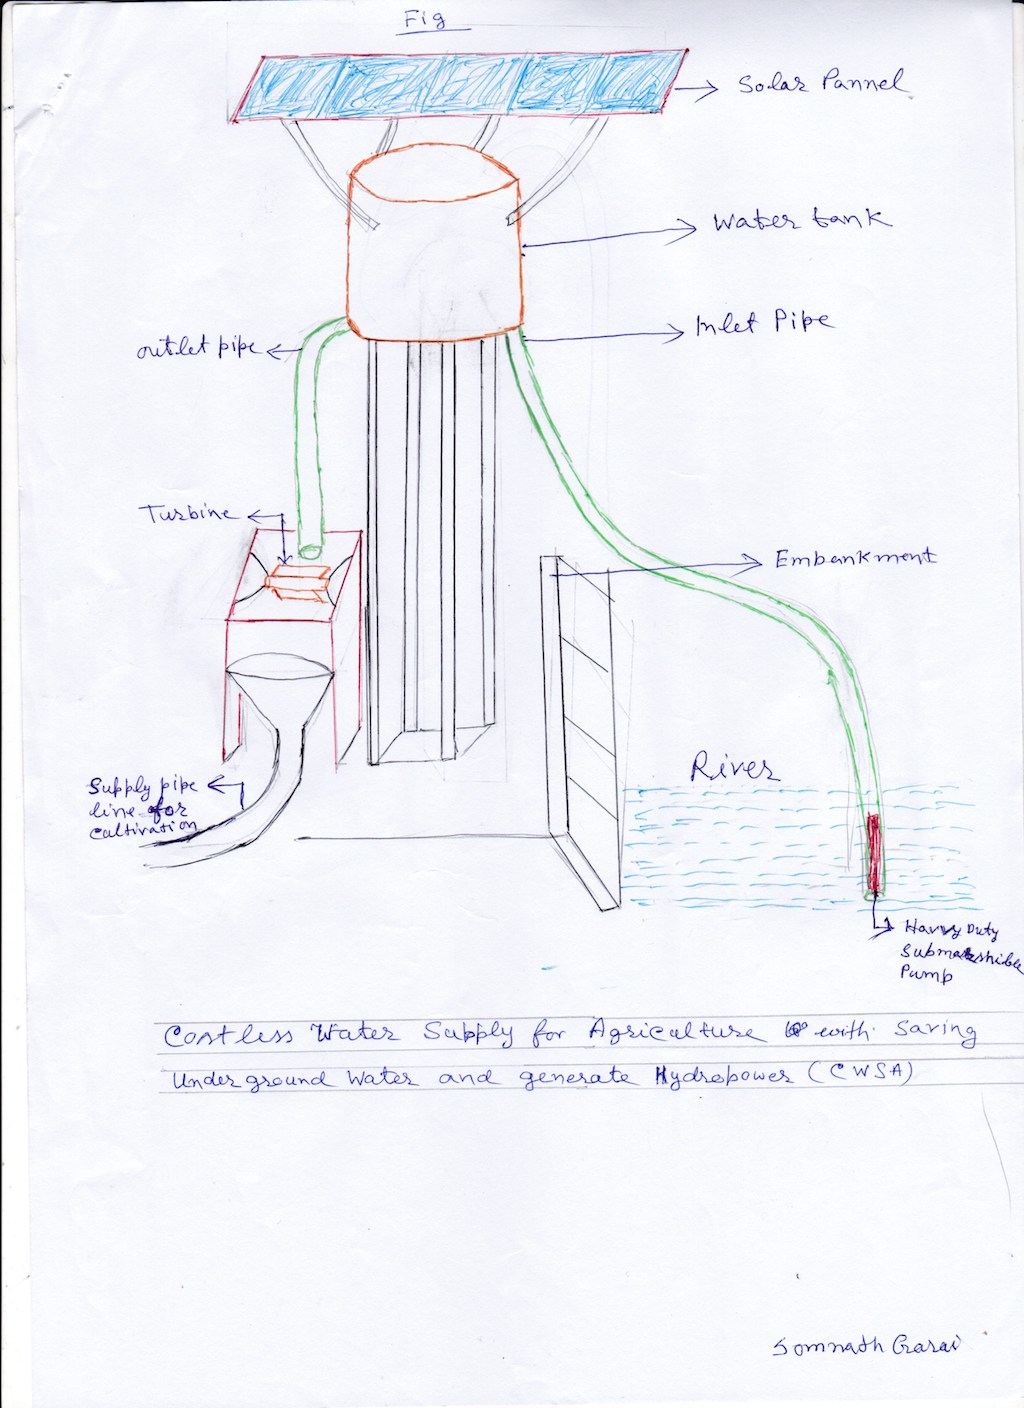 Fig
Solar Pannel
Water tank
Inlet Pipe
outlet pipe
Turbine
Embankment
River
Supply pipe
line for
cultivation
Havvy Duty
Pump
Costless Water Supply for Agriculture with Saving
Underground Water and generate Hydropower (CWSA)
Somnath Garai